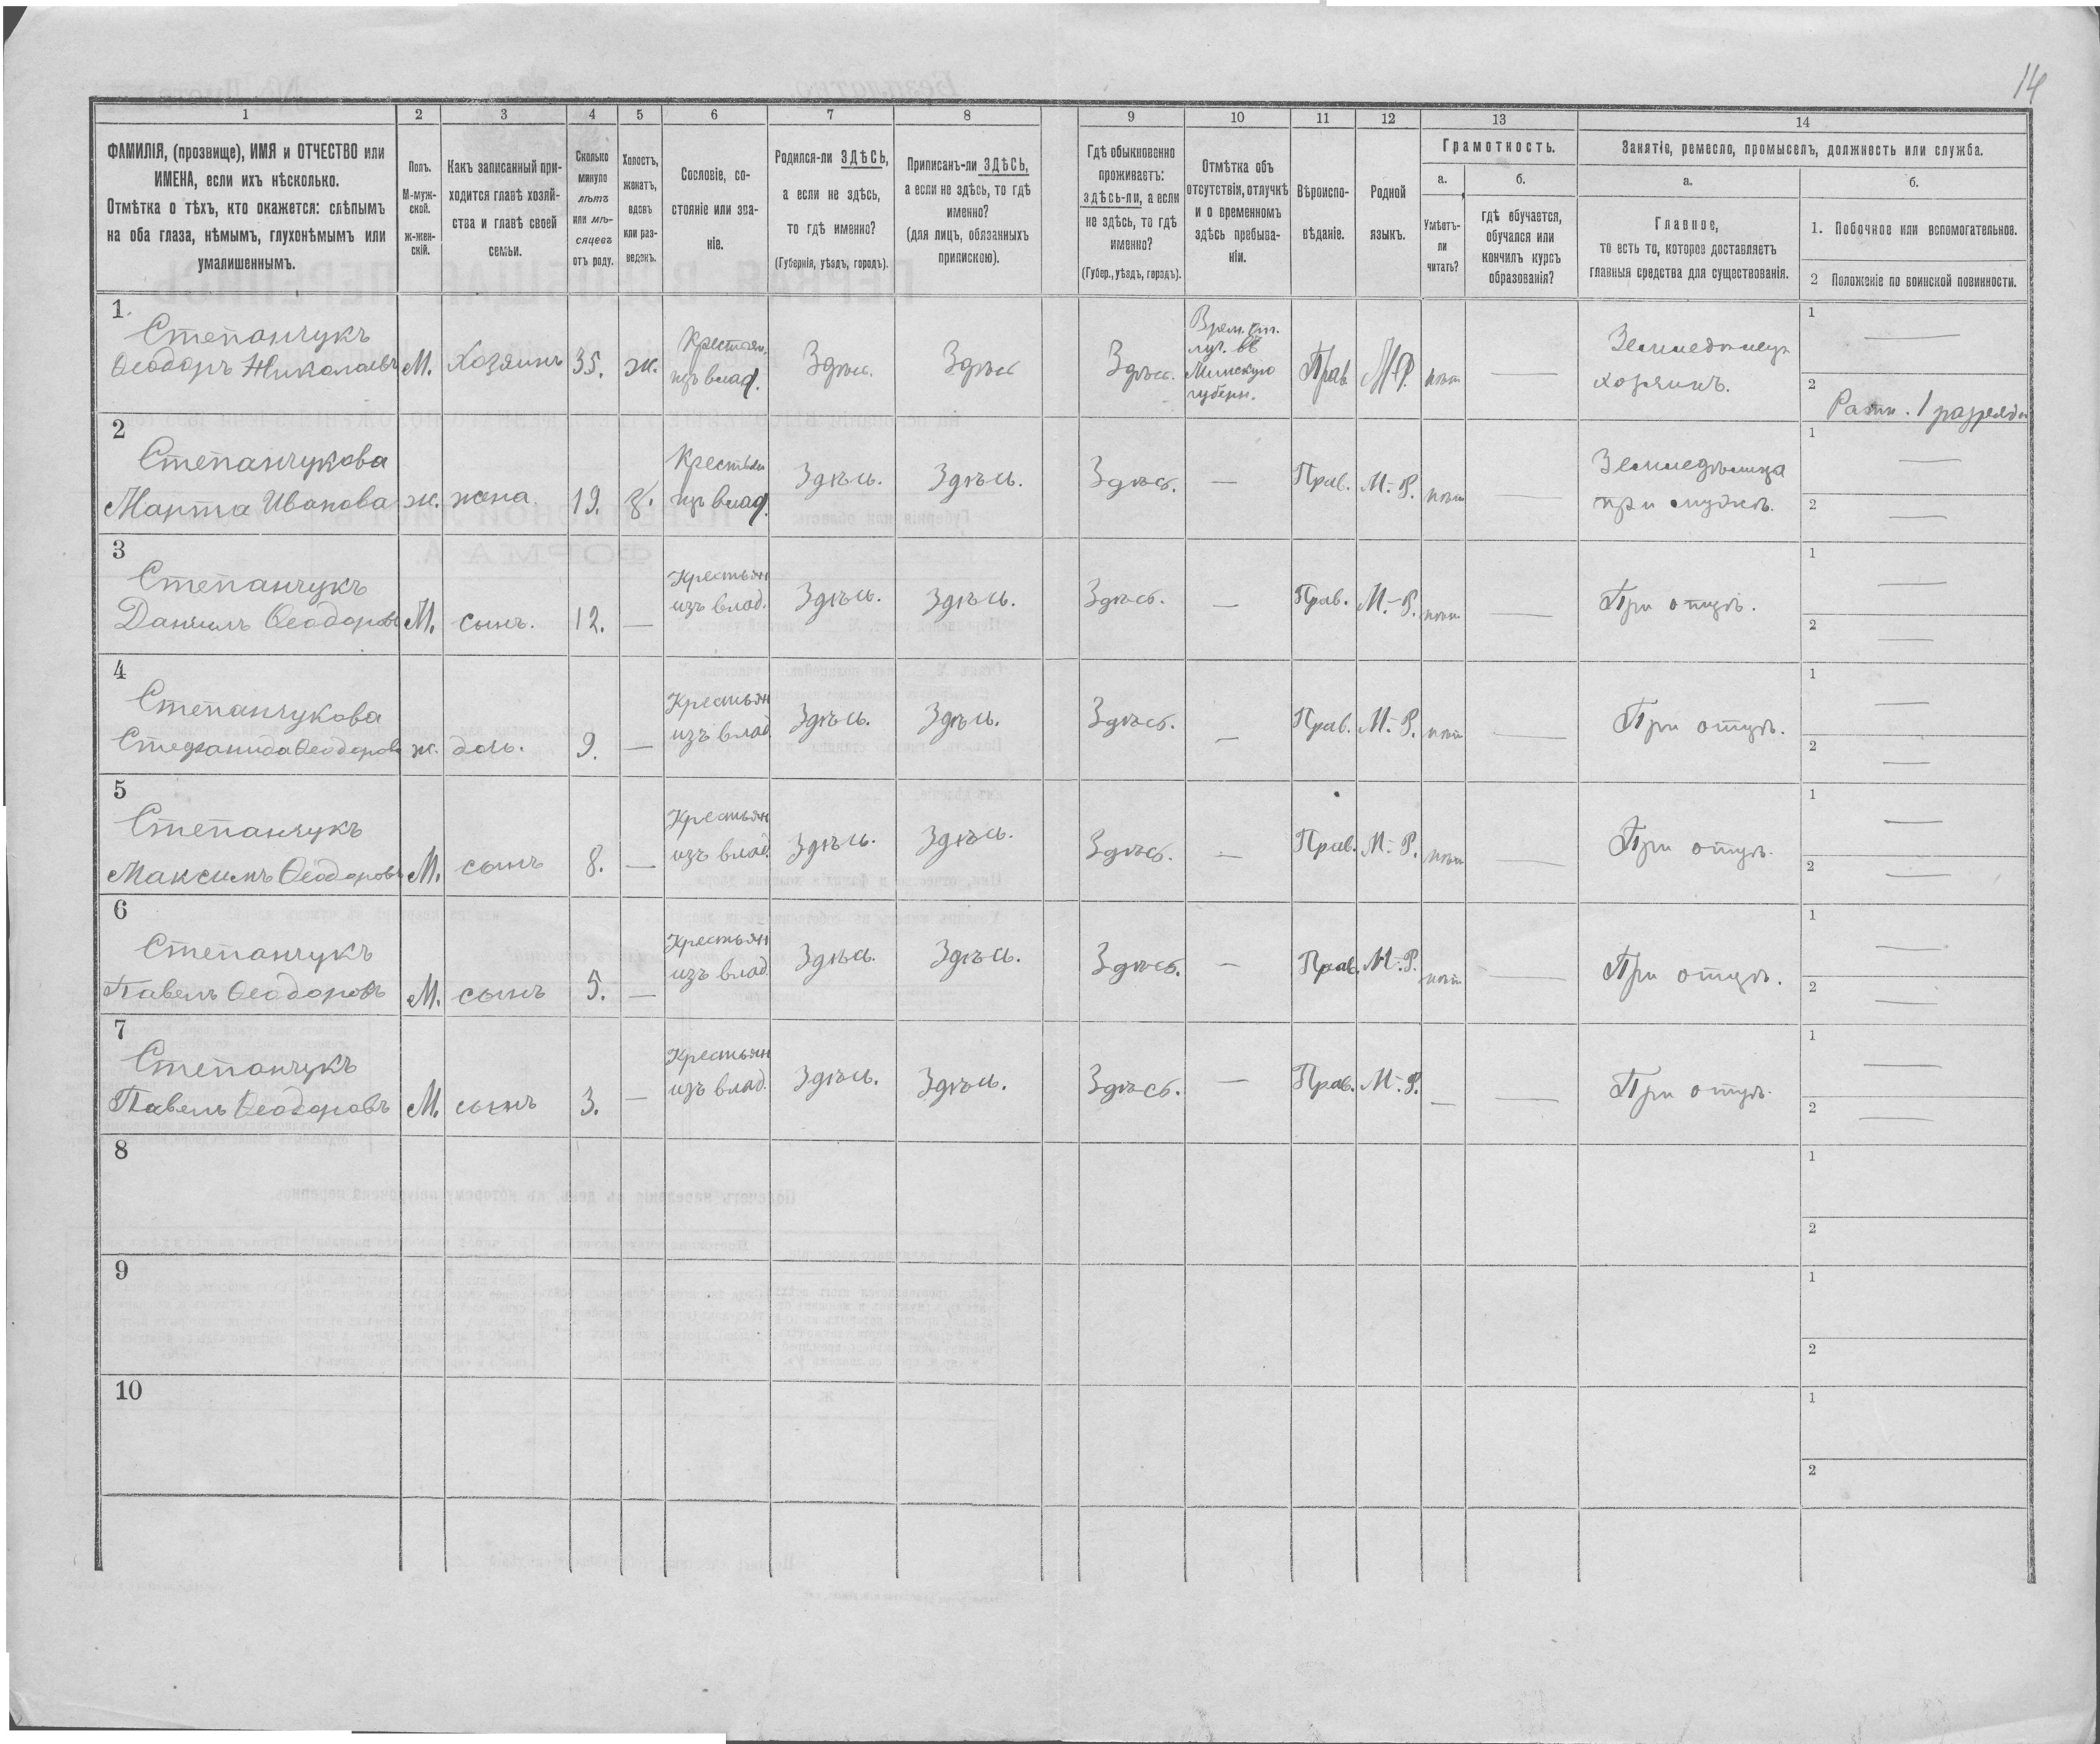 14
1 2 3 4 5 6 7 8 9 10 11 12 13 14
ФАМИЛІЯ, (прозвище), ИМЯ и ОТЧЕСТВО или
ИМЕНА, если ихъ нѣсколько.
Отмѣтка о тѣхъ, кто окажется: слѣпымъ
на оба глаза, нѣмымъ, глухонѣмымъ или
умалишеннымъ.
Полъ.
М-муж-
ской.
ж-жен-
скій.
Какъ записанный при-
ходится главѣ хозяй-
ства и главѣ своей
семьи.
Сколько
минуло
лѣтъ
или мѣ-
сяцевъ
отъ роду.
Холостъ,
женатъ,
вдовъ
или раз-
веденъ.
Сословіе, со-
стояніе или зва-
ніе.
Родился-ли ЗДѢСЬ,
а если не здѣсь,
то гдѣ именно?
(Губернія, уѣздъ, городъ).
Приписанъ-ли ЗДѢСЬ,
а если не здѣсь, то гдѣ
именно?
(для лицъ, обязанныхъ
припискою).
Гдѣ обыкновенно
проживаетъ:
здѣсь-ли, а если
не здѣсь, то гдѣ
именно?
(Губер., уѣздъ, городъ).
Отмѣтка объ
отсутствіи, отлучкѣ
и о временномъ
здѣсь пребыва-
ніи.
Вѣроиспо-
вѣданіе.
Родной
языкъ.
Грамотность.
а.
Умѣетъ-
ли
читать?
б.
гдѣ обучается,
обучался или
кончилъ курсъ
образованія?
Занятіе, ремесло, промыселъ, должность или служба.
а.
Главное,
то есть то, которое доставляетъ
главныя средства для существованія.
б.
1. Побочное или вспомогательное.
2 Положеніе по воинской повинности.
1.
Степанчукъ
Ѳеодоръ Николаевъ М. Хозяинъ 35. ж. Крестьян. изъ влад. Здѣсь Здѣсь Здѣсь.
Врем. от.
луч. въ
Минскую
губерн.
Прав. М.Р. нѣт —
Земледѣлец
хозяинъ.
1 —
2 Ратн. 1 разряда
2
Степанчукова
Марта Иванова ж. жена. 19. з. Крестьян изъ влад. Здѣсь. Здѣсь. Здѣсь. — Прав. М.-Р. нѣт —
Земледѣлица
при мужѣ.
1 —
2 —
3
Степанчукъ
Даниилъ Ѳеодоровъ М. сынъ. 12. — Крестьян изъ влад. Здѣсь. Здѣсь. Здѣсь. — Прав. М.-Р. нѣт — При отцѣ.
1 —
2 —
4
Степанчукова
Стефанида Ѳеодорова ж. доч. 9. — Крестьян изъ влад. Здѣсь. Здѣсь. Здѣсь. — Прав. М.-Р. нѣт — При отцѣ.
1 —
2 —
5
Степанчукъ
Максимъ Ѳеодоровъ М. сынъ 8. — Крестьян изъ влад. Здѣсь. Здѣсь. Здѣсь. — Прав. М.-Р. нѣт — При отцѣ.
1 —
2 —
6
Степанчукъ
Павелъ Ѳеодоровъ М. сынъ 5. — Крестьян изъ влад. Здѣсь. Здѣсь. Здѣсь. — Прав. М.-Р. нѣт — При отцѣ.
1 —
2 —
7
Степанчукъ
Павелъ Ѳеодоровъ М. сынъ 3. — Крестьян изъ влад. Здѣсь. Здѣсь. Здѣсь. — Прав. М.-Р. — — При отцѣ.
1 —
2 —
8
1
2
9
1
2
10
1
2